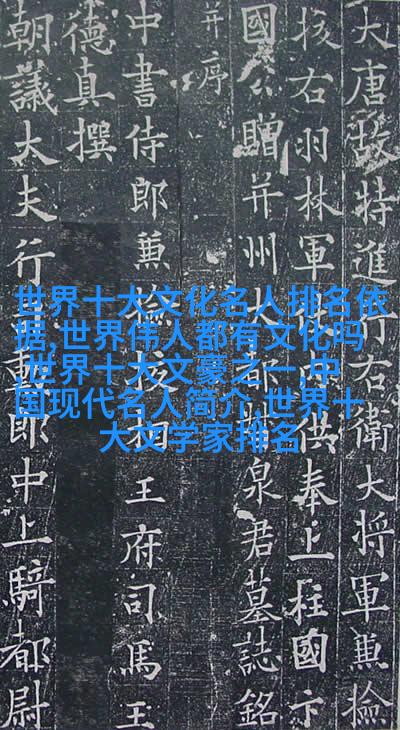 世界十大文化名人排名依
据,世界伟人都有文化吗
,世界十大文豪之一,中
国现代名人简介,世界十
大文学家排名
大唐故特進行右衛大將軍兼撿
挍右羽林軍內供奉上柱國卞
國公贈并州大都泉君墓誌銘
并序
中書侍郎兼撿挍相王府司馬王
德真撰
朝議大夫行勳郎中上騎都尉